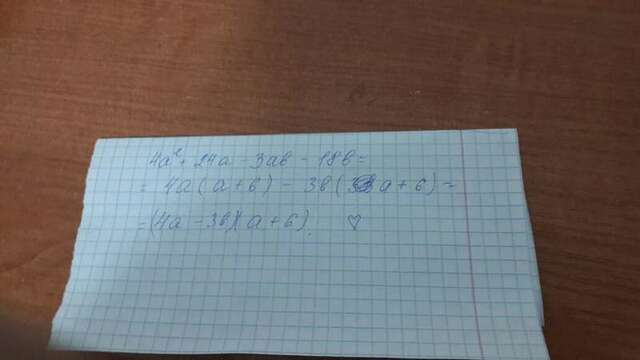 4a² + 24a - 3ab - 18b =
= 4a(a+6) - 3b(a+6) =
= (4a - 3b)(a+6). ♡